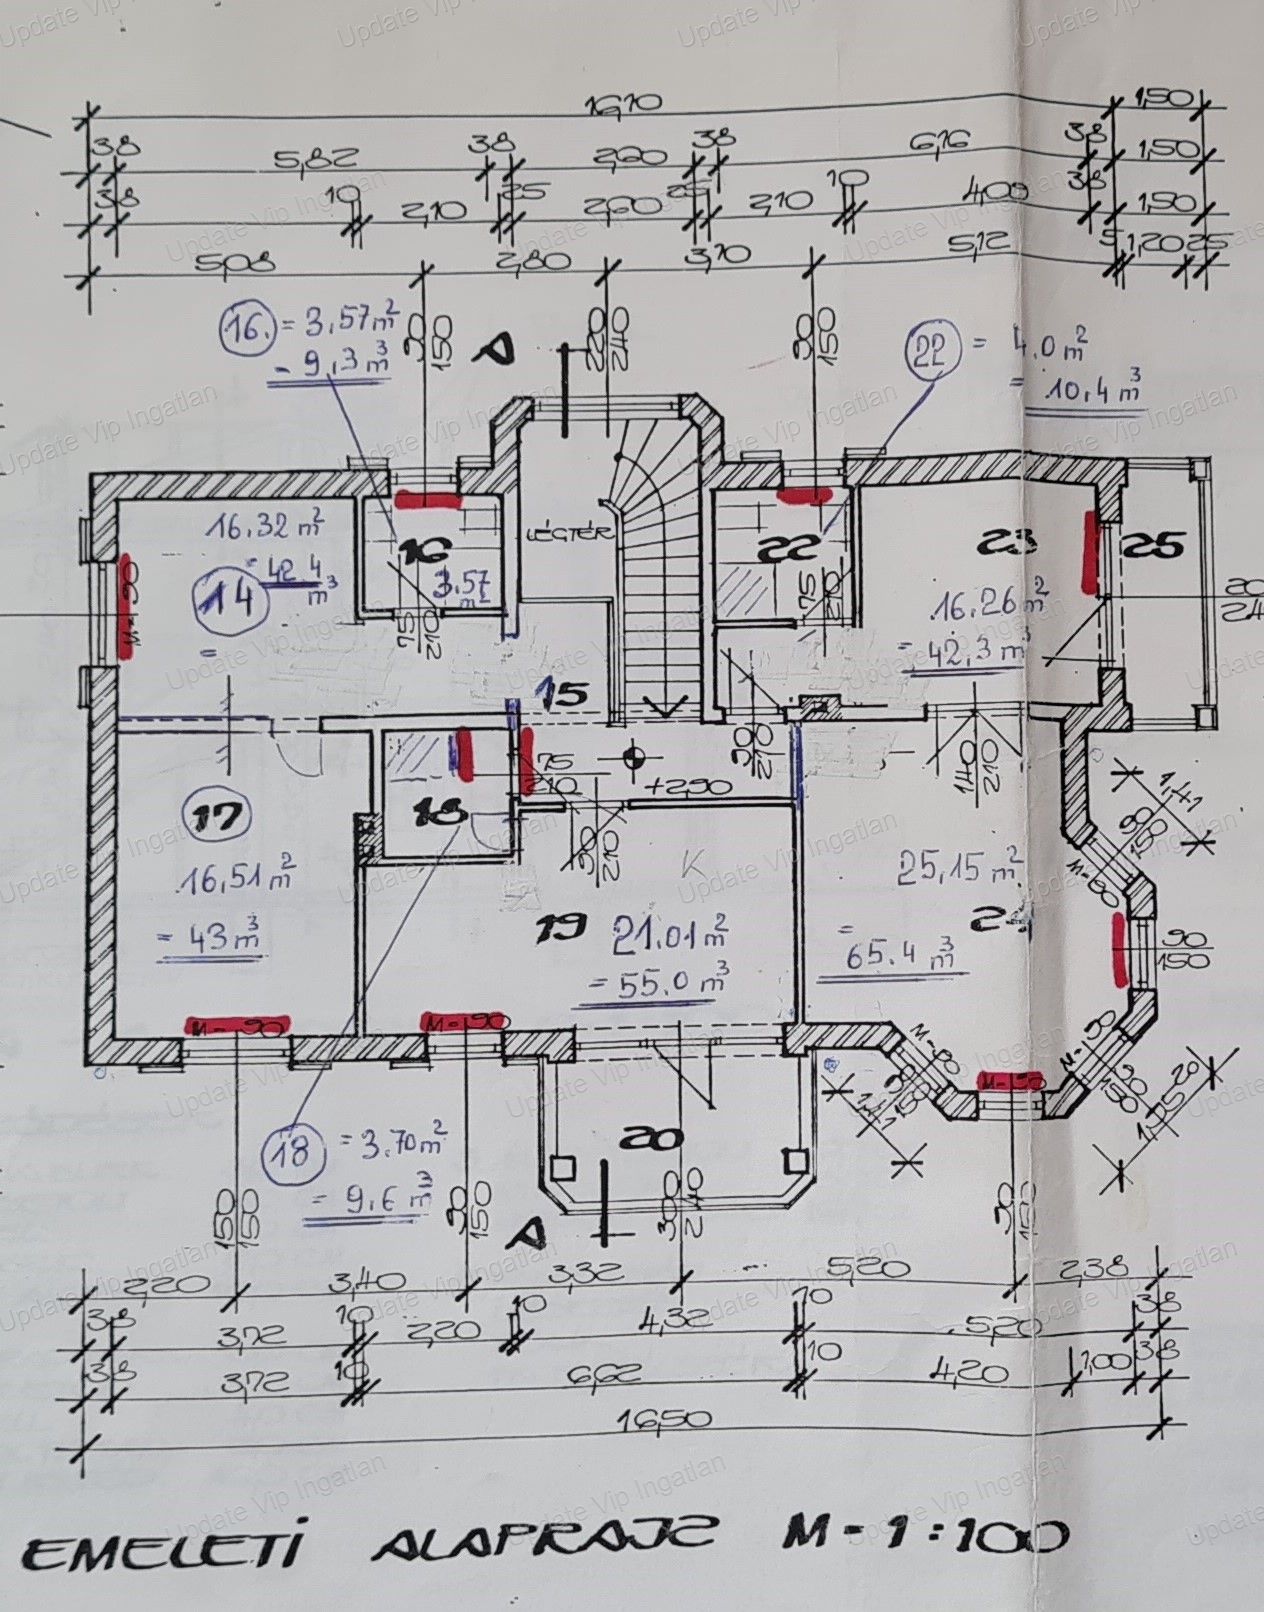 16,10
1,50
38
5,82
38
2,60
38
6,16
38
1,50
38
10
2,10
25
2,60
25
2,10
10
4,00
38
1,50
5,08
2,80
3,70
5,12
5
1,20
25
16. = 3.57m²
= 9,3 m³
90
150
A
220
240
90
150
22 = 4.0 m²
= 10.4 m³
16.32 m²
= 42.4 m³
14
=
M=90
16
3.57 m²
75
210
LÉGTÉR
15
22
75
210
23
16.26 m²
= 42,3 m³
25
20
24
17
16,51 m²
= 43 m³
18
75
210
+2,90
90
210
90
210
140
210
K
19
21.01 m²
= 55.0 m³
25,15 m²
24
= 65.4 m³
1,41
90
150
M=90
90
150
M=90
M=90
M=90
M=90
M=90
90
150
1,41
20
150
18 = 3.70 m²
= 9.6 m³
20
A
150
150
90
150
300
240
90
150
2,20
3,40
3,32
5,20
2,38
38
3,72
10
2,20
10
4,32
10
5,20
38
38
3,72
10
6,62
10
4,20
1,00
38
16,50
EMELETI ALAPRAJZ M=1:100
Update Vip Ingatlan